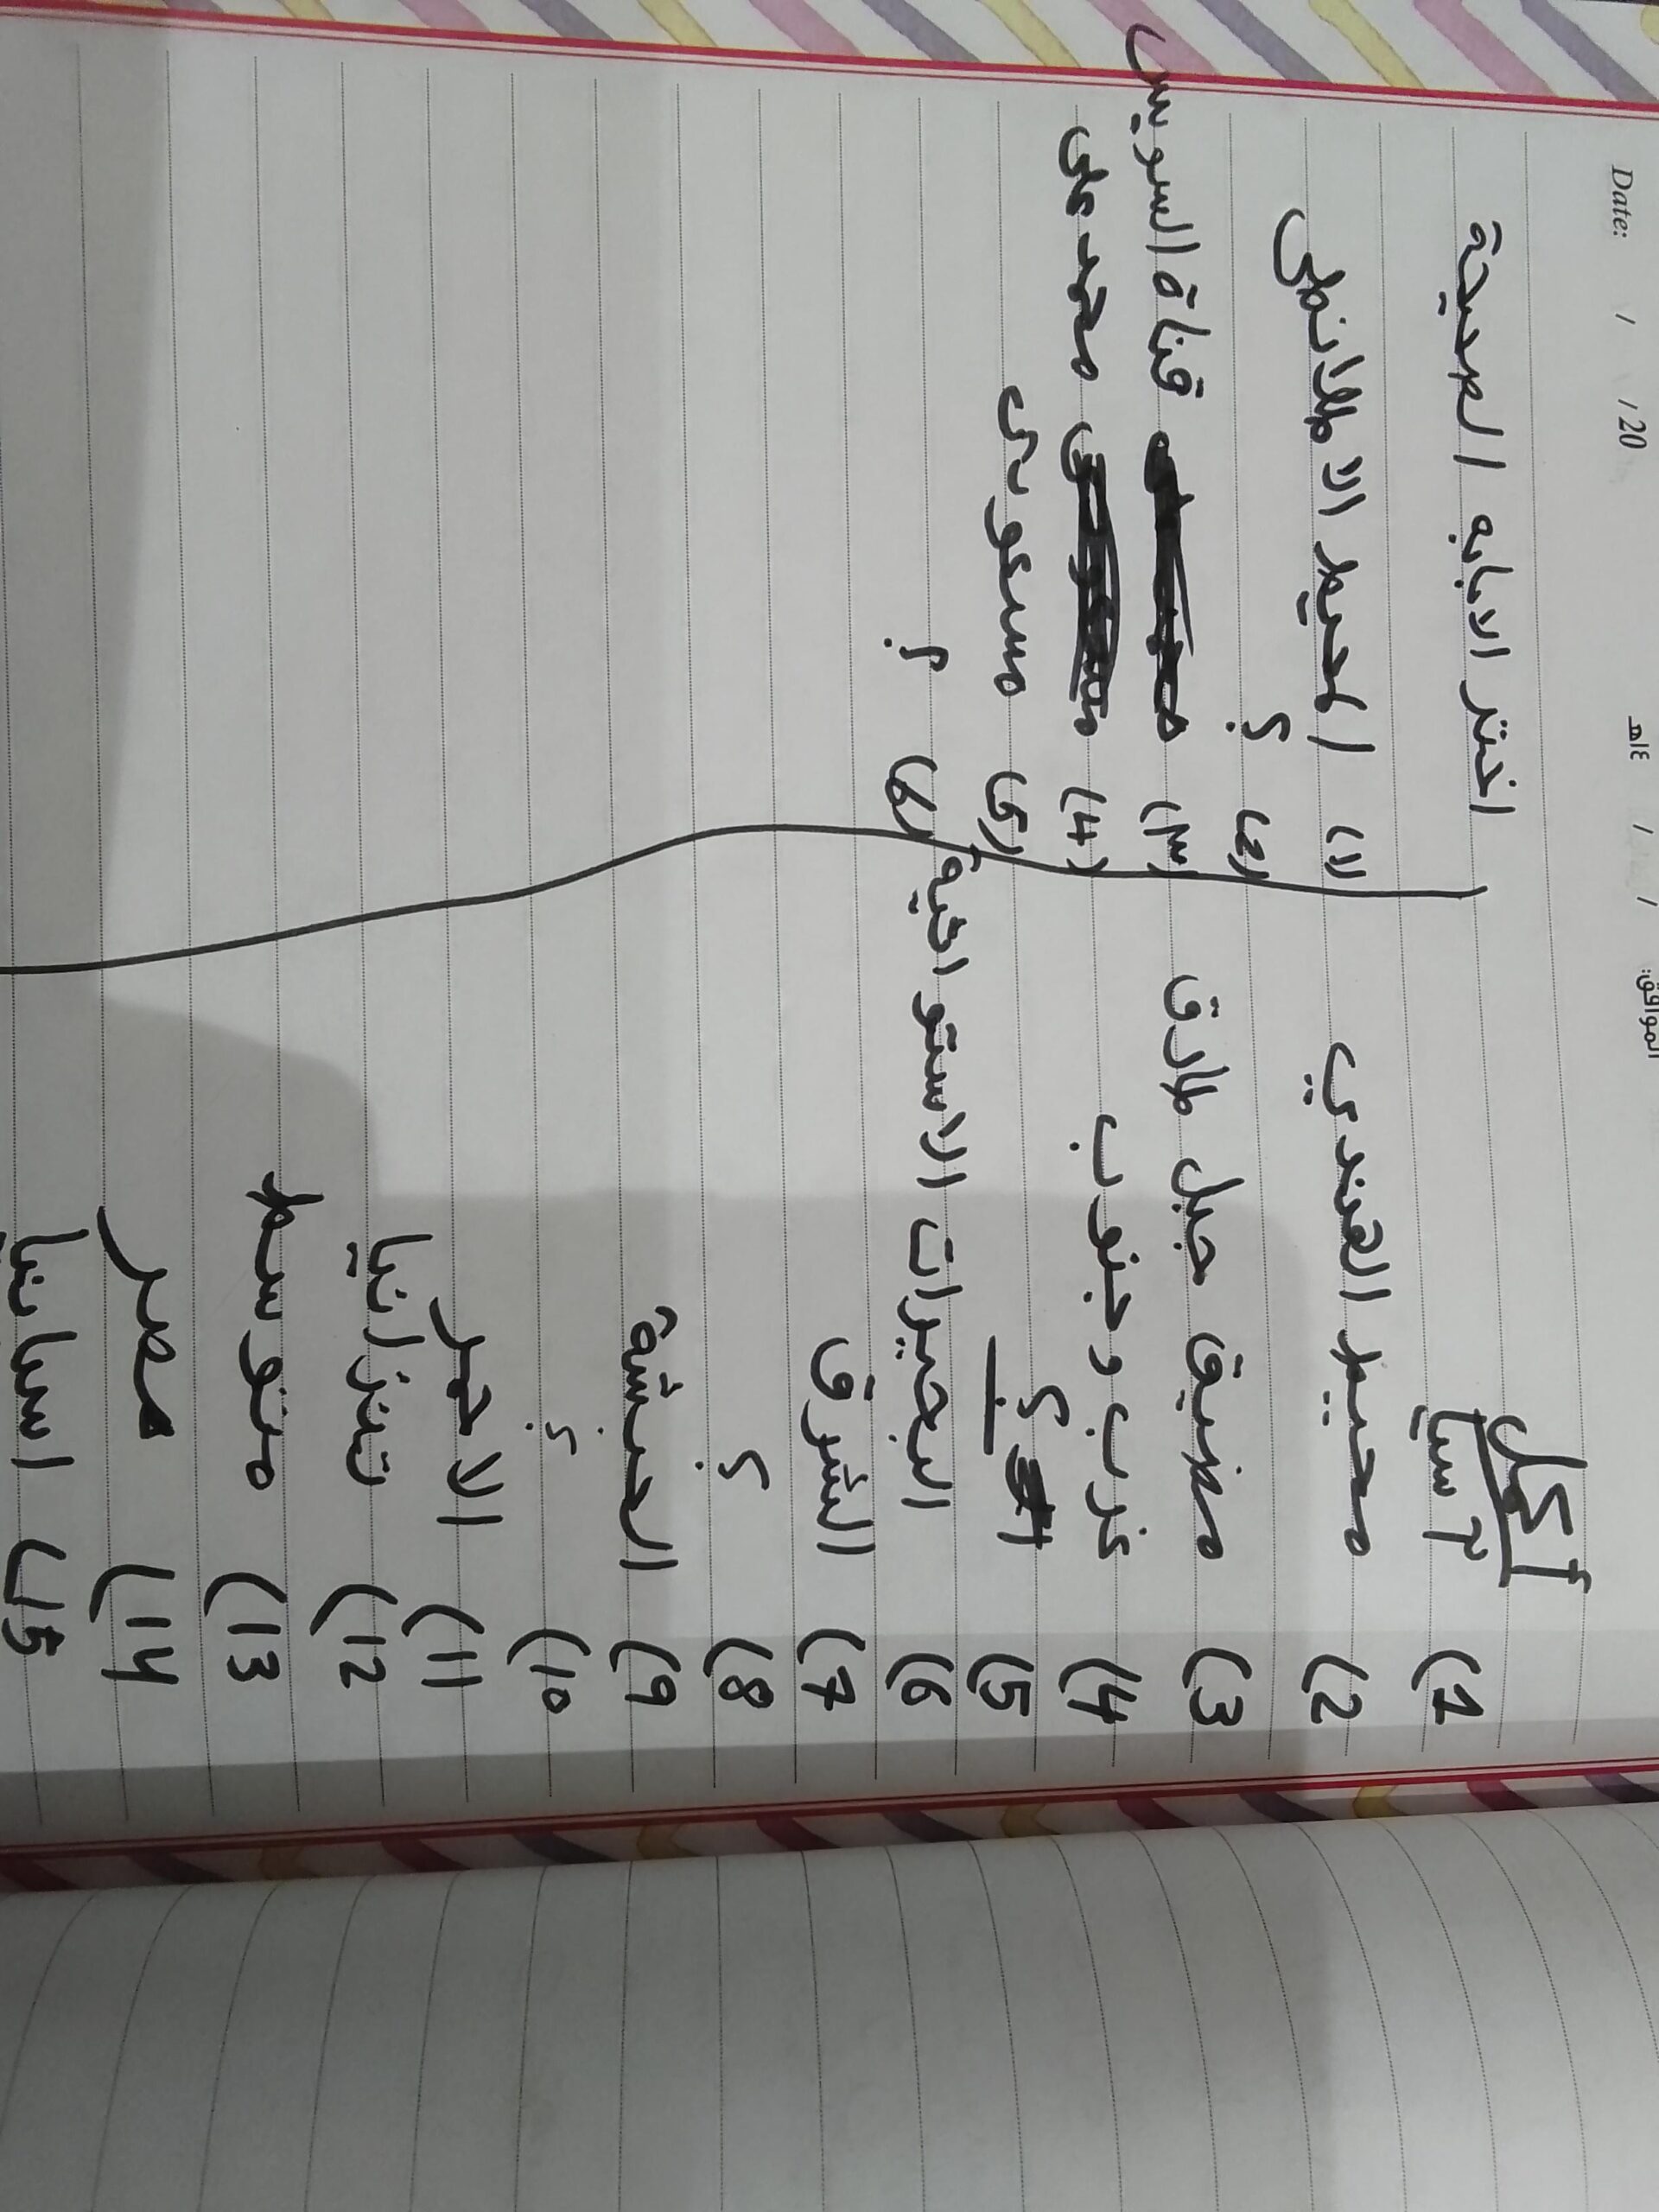 Date: / / 20
١٤هـ / / الموافق:
أكمل
1) آسيا
2) محيط الهندي
3) مضيق جبل طارق
4) غرب وجنوب
5) ؟
6) البحيرات الاستوائية
7) الشرق
8) ؟
9) الحبشة
10) ؟
11) الاحمر
12) تنزانيا
13) متوسط
14) مصر
15) اسبانيا
اختر الاجابه الصحيحة
(1) المحيط الاطلانطى
(2) ؟
(3) قناة السويس
(4) محمد على
(5) سعودى
(6) ؟